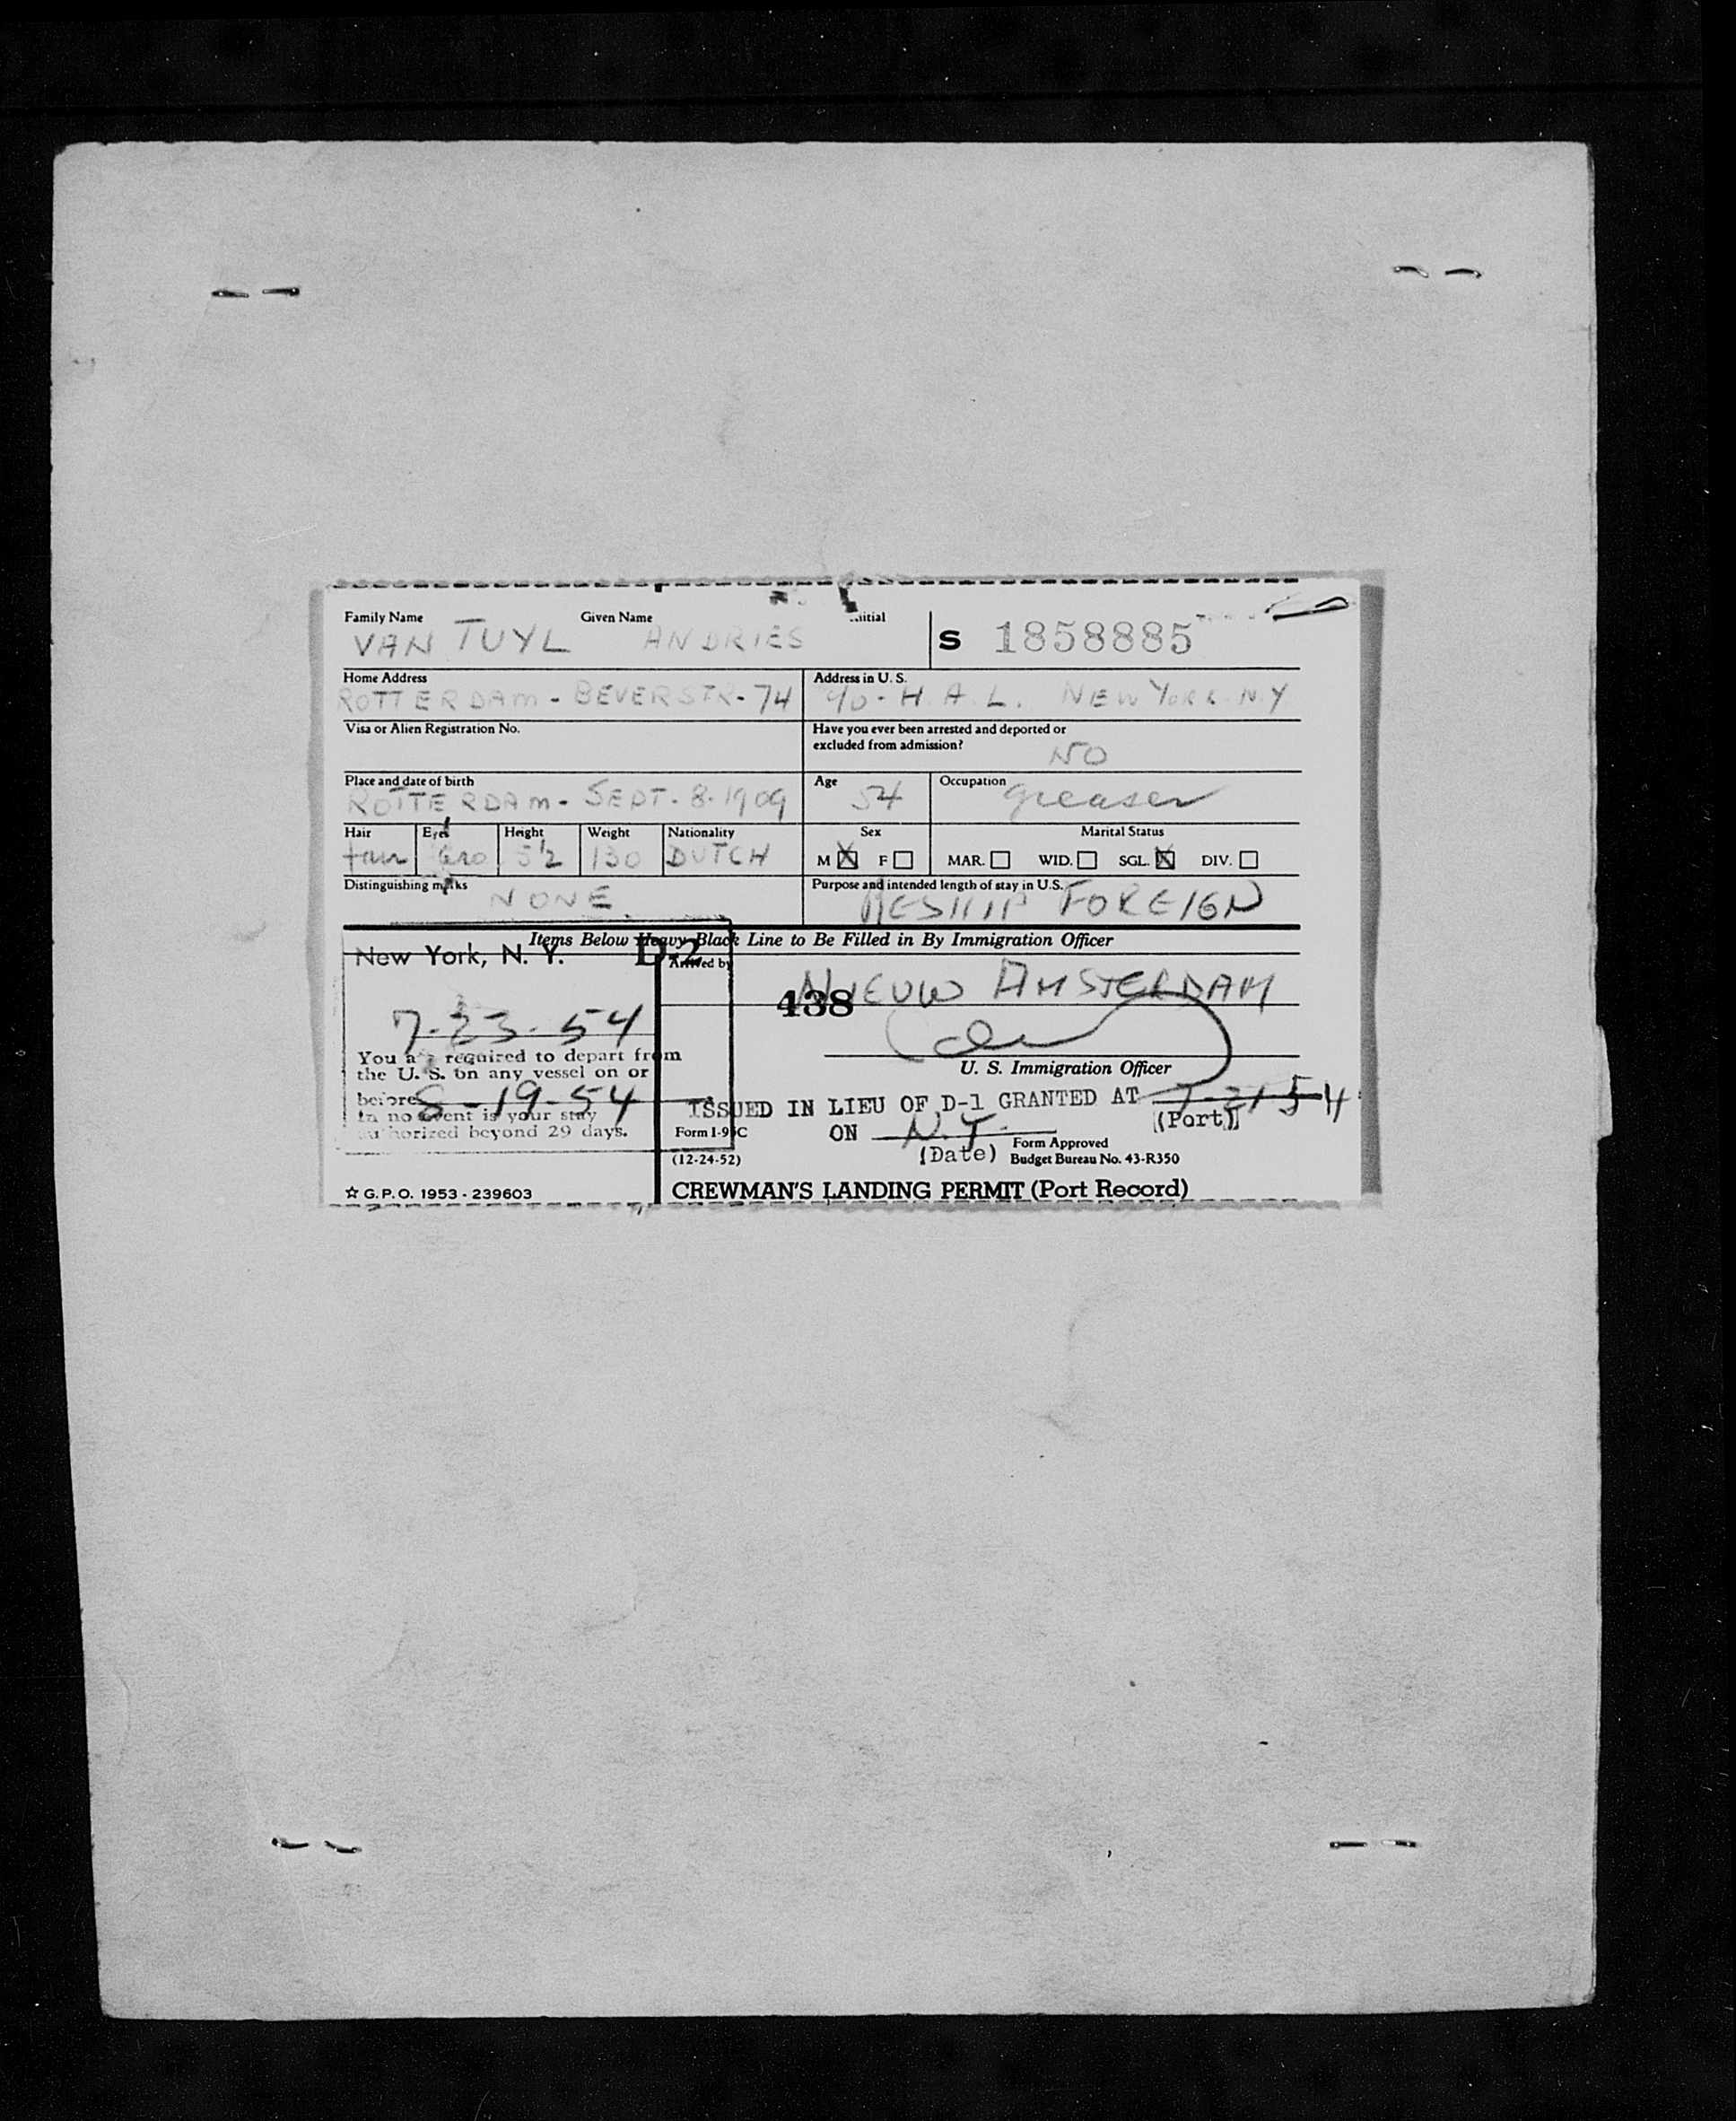 Family Name Given Name
VAN TUYL ANDRIES
S 1858885
Home Address
ROTTERDAM - BEVERSTR - 74
Address in U.S.
H. A. L. NEW YORK N.Y
Visa or Alien Registration No.
Have you ever been arrested and deported or
excluded from admission?
NO
Place and date of birth
ROTTERDAM - SEPT. 8. 1909
Age
54
Occupation
greaser
Hair Eyes Height Weight Nationality
5'2 130 DUTCH
Sex
M ☒ F ☐
Marital Status
MAR. ☐ WID. ☐ SGL. ☒ DIV. ☐
Distinguishing marks
NONE
Purpose and intended length of stay in U.S.
RESHIP FOREIGN
Items Below Heavy Black Line to Be Filled in By Immigration Officer
New York, N. Y. D-2
7-23-54
You are required to depart from
the U. S. on any vessel on or
before 8-19-54
In no event is your stay
authorized beyond 29 days.
☆ G.P.O. 1953 - 239603
Arrived by
NIEUW AMSTERDAM
438
U. S. Immigration Officer
ISSUED IN LIEU OF D-1 GRANTED AT 7-21-54
(Port)
ON N.Y.
(Date)
Form I-95C
(12-24-52)
Form Approved
Budget Bureau No. 43-R350
CREWMAN'S LANDING PERMIT (Port Record)